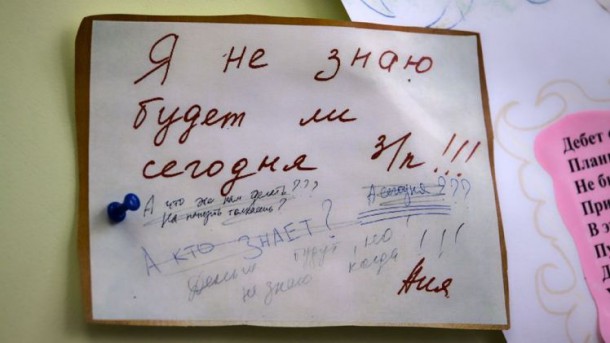 Я не знаю
будет ли
сегодня з/п!!!
А что же нам делать???
На паперть
А сегодня???
А КТО ЗНАЕТ?
Деньги будут, но
не знаю когда!!!
Аня
Дебет
План
Не б
При
В э
Пу
Д